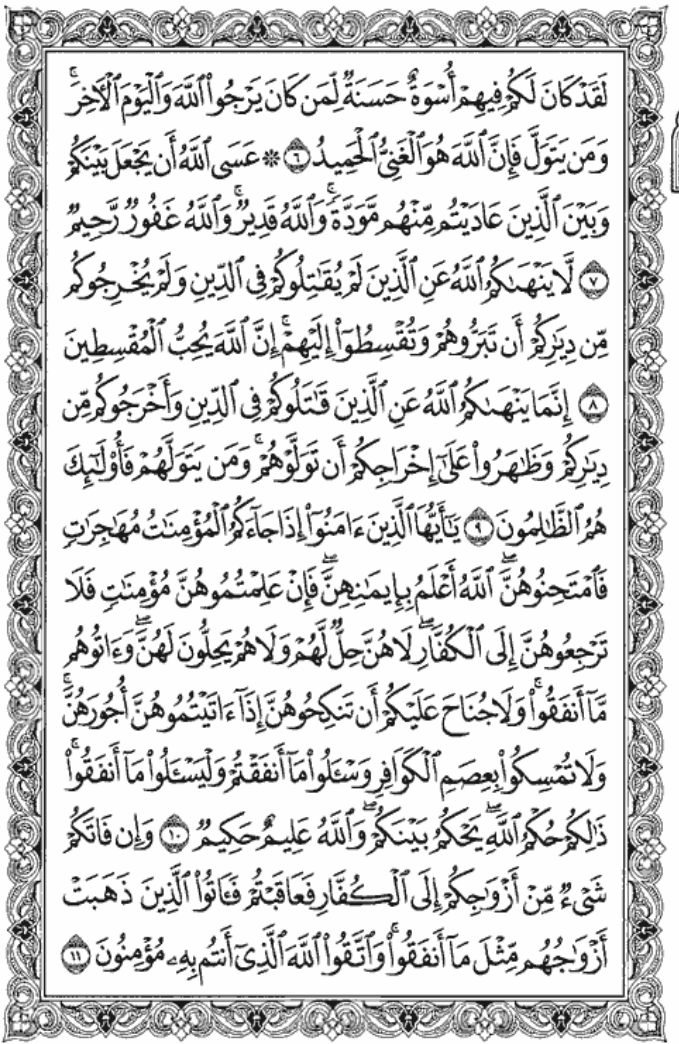 لَقَدْ كَانَ لَكُمْ فِيهِمْ أُسْوَةٌ حَسَنَةٌ لِّمَن كَانَ يَرْجُواْ ٱللَّهَ وَٱلْيَوْمَ ٱلْأَخِرَۚ
وَمَن يَتَوَلَّ فَإِنَّ ٱللَّهَ هُوَ ٱلْغَنِىُّ ٱلْحَمِيدُ ٦ ۞ عَسَى ٱللَّهُ أَن يَجْعَلَ بَيْنَكُمْ
وَبَيْنَ ٱلَّذِينَ عَادَيْتُم مِّنْهُم مَّوَدَّةًۚ وَٱللَّهُ قَدِيرٌۚ وَٱللَّهُ غَفُورٌ رَّحِيمٌ
٧ لَّا يَنْهَىٰكُمُ ٱللَّهُ عَنِ ٱلَّذِينَ لَمْ يُقَٰتِلُوكُمْ فِى ٱلدِّينِ وَلَمْ يُخْرِجُوكُم
مِّن دِيَٰرِكُمْ أَن تَبَرُّوهُمْ وَتُقْسِطُوٓاْ إِلَيْهِمْۚ إِنَّ ٱللَّهَ يُحِبُّ ٱلْمُقْسِطِينَ
٨ إِنَّمَا يَنْهَىٰكُمُ ٱللَّهُ عَنِ ٱلَّذِينَ قَٰتَلُوكُمْ فِى ٱلدِّينِ وَأَخْرَجُوكُم مِّن
دِيَٰرِكُمْ وَظَٰهَرُواْ عَلَىٰٓ إِخْرَاجِكُمْ أَن تَوَلَّوْهُمْۚ وَمَن يَتَوَلَّهُمْ فَأُوْلَٰٓئِكَ
هُمُ ٱلظَّٰلِمُونَ ٩ يَٰٓأَيُّهَا ٱلَّذِينَ ءَامَنُوٓاْ إِذَا جَآءَكُمُ ٱلْمُؤْمِنَٰتُ مُهَٰجِرَٰتٍ
فَٱمْتَحِنُوهُنَّۖ ٱللَّهُ أَعْلَمُ بِإِيمَٰنِهِنَّۖ فَإِنْ عَلِمْتُمُوهُنَّ مُؤْمِنَٰتٍ فَلَا
تَرْجِعُوهُنَّ إِلَى ٱلْكُفَّارِۖ لَا هُنَّ حِلٌّ لَّهُمْ وَلَا هُمْ يَحِلُّونَ لَهُنَّۖ وَءَاتُوهُم
مَّآ أَنفَقُواْۚ وَلَا جُنَاحَ عَلَيْكُمْ أَن تَنكِحُوهُنَّ إِذَآ ءَاتَيْتُمُوهُنَّ أُجُورَهُنَّۚ
وَلَا تُمْسِكُواْ بِعِصَمِ ٱلْكَوَافِرِ وَسْـَٔلُواْ مَآ أَنفَقْتُمْ وَلْيَسْـَٔلُواْ مَآ أَنفَقُواْۚ
ذَٰلِكُمْ حُكْمُ ٱللَّهِۖ يَحْكُمُ بَيْنَكُمْۖ وَٱللَّهُ عَلِيمٌ حَكِيمٌ ١٠ وَإِن فَاتَكُمْ
شَىْءٌ مِّنْ أَزْوَٰجِكُمْ إِلَى ٱلْكُفَّارِ فَعَاقَبْتُمْ فَـَٔاتُواْ ٱلَّذِينَ ذَهَبَتْ
أَزْوَٰجُهُم مِّثْلَ مَآ أَنفَقُواْۚ وَٱتَّقُواْ ٱللَّهَ ٱلَّذِىٓ أَنتُم بِهِۦ مُؤْمِنُونَ ١١